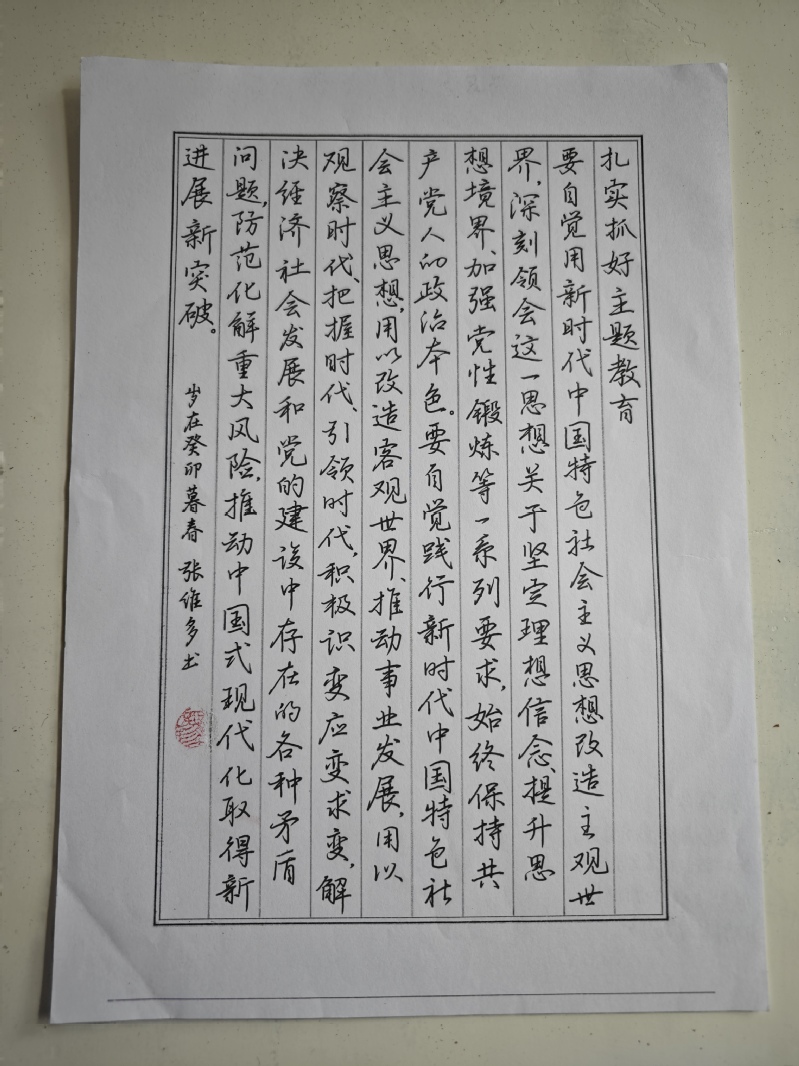 扎实抓好主题教育
要自觉用新时代中国特色社会主义思想改造主观世
界，深刻领会这一思想关于坚定理想信念、提升思
想境界、加强党性锻炼等一系列要求，始终保持共
产党人的政治本色。要自觉践行新时代中国特色社
会主义思想，用以改造客观世界、推动事业发展，用以
观察时代、把握时代、引领时代，积极识变应变求变，解
决经济社会发展和党的建设中存在的各种矛盾
问题，防范化解重大风险，推动中国式现代化取得新
进展新突破。
岁在癸卯暮春 张维多书